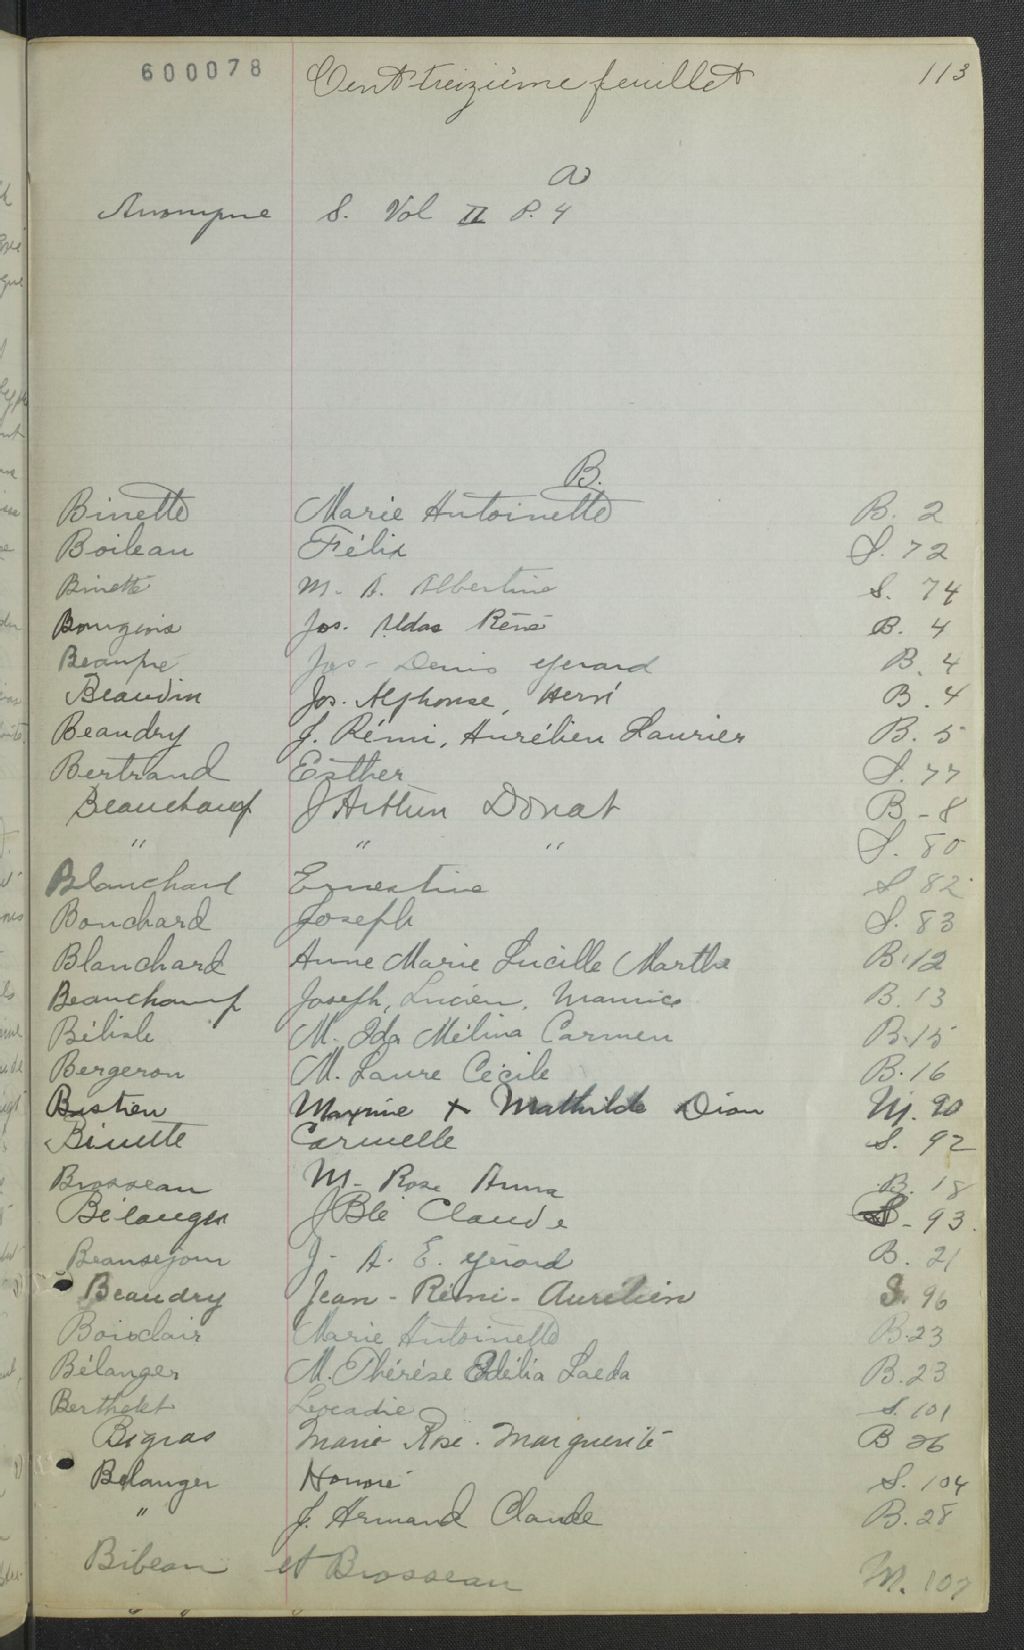 600078 Cent treizième feuillet 113
A
Anonyme S. Vol II P. 4
B.
Binette Marie Antoinette B. 2
Boileau Félix S. 72
Binette M. A. Albertine S. 74
Bourgeois Jos. Aldas Réné B. 4
Beaupré Jos - Denis Gerard B. 4
Beaudin Jos. Alphonse, Hervé B. 4
Beaudry J. Rémi, Aurélien Laurier B. 5
Bertrand Esther S. 77
Beauchamp J Arthur Donat B - 8
" " " S. 80
Blanchard Ernestine S. 82
Bouchard Joseph S. 83
Blanchard Anne Marie Lucille Marthe B. 12
Beauchamp Joseph, Lucien, Maurice B. 13
Bélisle M. Ida Mélina Carmen B. 15
Bergeron M. Laure Cécile B. 16
Bastien Maxime + Mathilde Dion M. 90
Binette Carmelle S. 92
Brosseau M- Rose Anna B. 18
Bélanger J Bte Claude S - 93.
Beausejour J- A. E. Gérard B. 21
Beaudry Jean - Rémi - Aurélien S. 96
Boisclair Marie Antoinette B. 23
Bélanger M. Thérése Adélia Laeda B. 23
Berthelet Leocadie S. 101
Bigras Marie Rose. Marguerite B 26
Bélanger Honoré S. 104
" J. Armand Claude B. 28
Bibeau et Brosseau M. 107